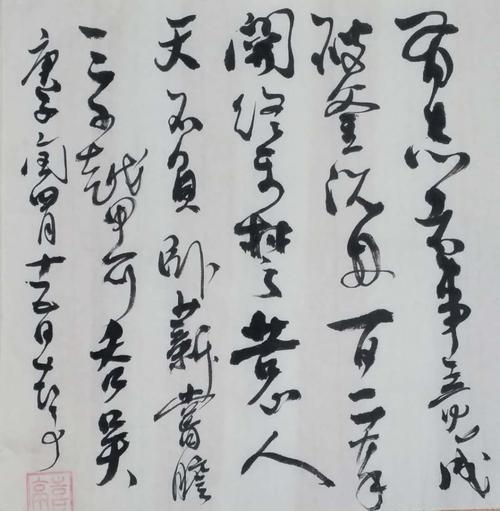 有志者事竟成
破釜沉舟百二秦
關終屬楚苦心人
天不負卧薪嘗膽
三千越甲可吞吳
庚子閏四月十五日